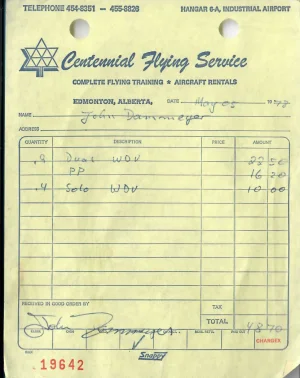 TELEPHONE 454-8351 - 455-8826 HANGAR 6-A, INDUSTRIAL AIRPORT
Centennial Flying Service
COMPLETE FLYING TRAINING ★ AIRCRAFT RENTALS
EDMONTON, ALBERTA, DATE May 05 19
NAME John Dammeyer
ADDRESS
QUANTITY DESCRIPTION PRICE AMOUNT
.9 Dual WDV 22 50
PP 16 20
.4 Solo WDV 10 00
RECEIVED IN GOOD ORDER BY TAX
John Dammeyer TOTAL 48 70
CHARGEX
Snappy
19642